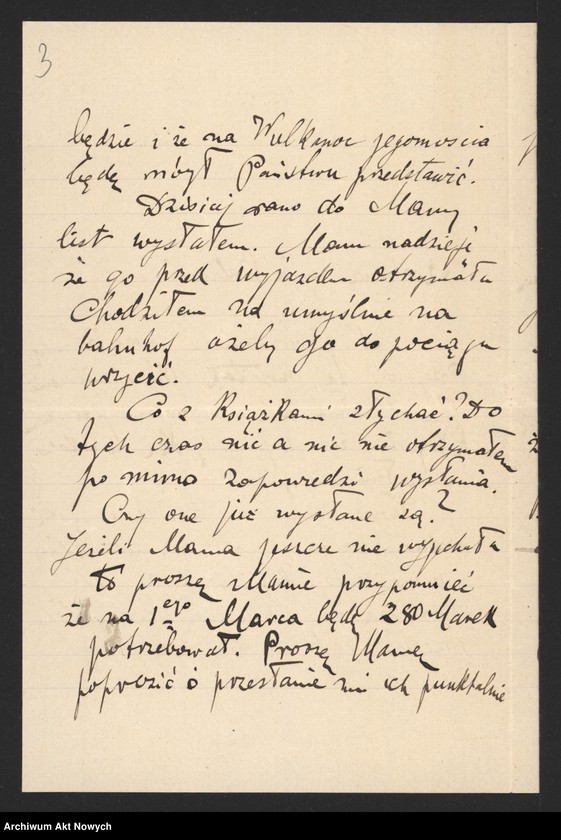 3
będzie i że na Wielkanoc jegomościa
będę mógł Państwu przedstawić.
Dzisiaj rano do Mamy
list wysłałem. Mam nadzieję
że go przed wyjazdem otrzymała
Chodziłem na umyślnie na
bahnhof ażeby go do pociągu
wrzucić.
Co z Książkami słychać? Do
tych czas nic a nic nie otrzymałem
po mimo zapowiedzi wysłania.
Czy one już wysłane są?
Jeżeli Mama jeszcze nie wyjechała
to proszę Mamie przypomnieć
że na 1ego Marca będę 280 Marek
potrzebował. Proszę Mamę
poprosić o przesłanie mi ich punktalnie
Archiwum Akt Nowych